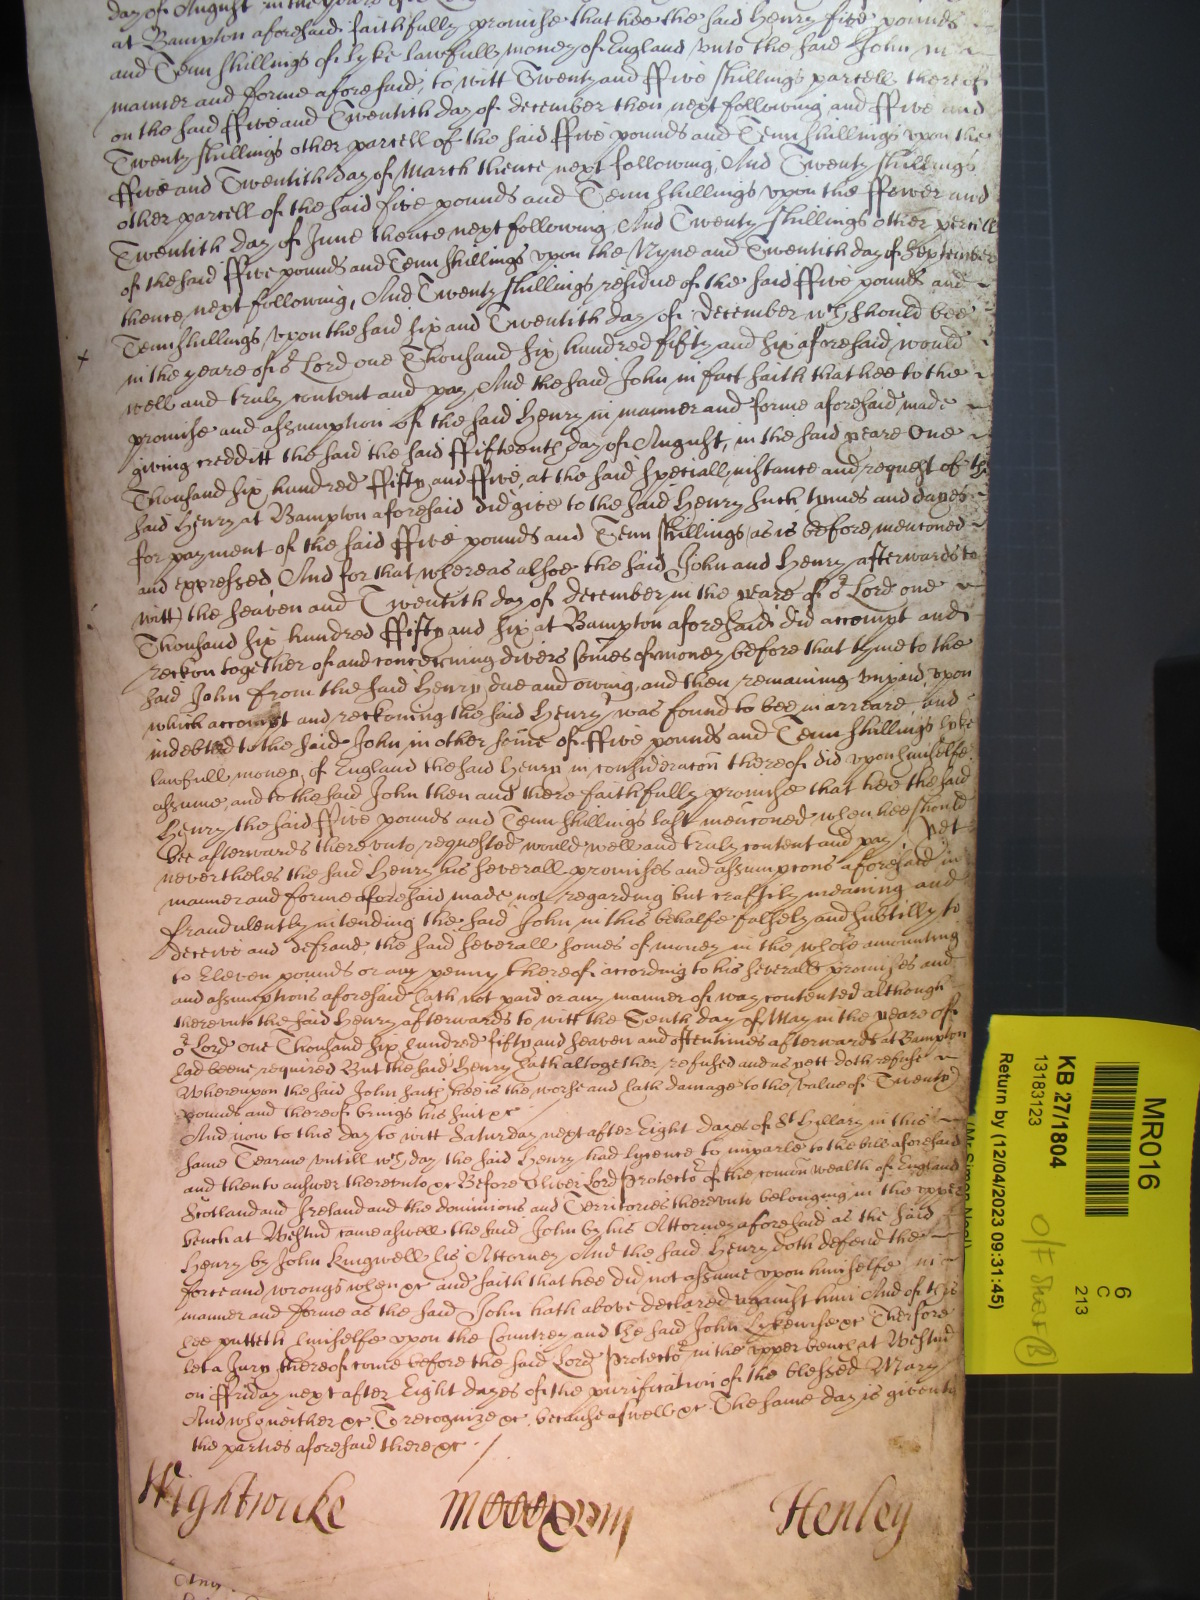 day of August in the yeare of
at Bampton aforesaid faithfully promise that hee the said Henry five pounds
and Tenn shillings of lyke lawfully money of England unto the said John in
manner and forme aforesaid, to witt Twenty and ffive shillings parcell thereof
on the said ffive and Twentith day of december then next following and ffive and
Twenty shillings other parcell of the said ffive pounds and Tenn shillings upon the
ffive and Twentith day of March thence next following, And Twenty shillings
other parcell of the said five pounds and Tenn shillings upon the ffower and
Twentith day of June thence next following And Twenty shillings other percell
of the said ffive pounds and Tenn shillings upon the Nyne and Twentith day of September
thence next following, And Twenty shillings residue of the said ffive pounds and
Tenn shillings upon the said six and Twentith day of december wch should bee
in the yeare of or Lord one Thousand six hundred fifty and six aforesaid would
well and truly content and pay And the said John in fact saith that hee to the
promise and assumption of the said Henry in manner and forme aforesaid made
giving creditt the said the said ffifteenth day of August, in the said yeare One
Thousand six hundred ffifty and ffive, at the said speciall instance and request of the
said Henry at Bampton aforesaid did give to the said Henry such tymes and dayes
for payment of the said ffive pounds and Tenn shillings as is before mencioned
and expressed And for that whereas alsoe the said John and Henry afterwards to
witt the seaven and Twentith day of december in the yeare of or Lord one
Thousand six hundred ffifty and six at Bampton aforesaid did accompt and
reckon together of and concerning divers somes of money before that tyme to the
said John from the said Henry due and owing, and then remaining unpaid, upon
which accompt and reckoning the said Henry was found to bee in arreare and
indebted to the said John in other some of ffive pounds and Tenn shillings lyke
lawfull money of England the said Henry in consideracon thereof did upon himselfe
assume, and to the said John then and there faithfully promise that hee the said
Henry the said ffive pounds and Tenn shillings last mencioned when hee should
bee afterwards thereunto requested would well and truly content and pay Yet
neverthelesse the said Henry his severall promises and assumpcons aforesaid in
manner and forme aforesaid made not regarding but craftily meaning and
fraudulently intending the said John in this behalfe falsely and subtilly to
deceive and defraud the said severall somes of money in the whole amounting
to Eleven pounds or any penny thereof according to his severall promises and
and assumptions aforesaid hath not paid or any manner of way contented although
thereunto the said Henry afterwards to witt the Tenth day of May in the yeare of
or Lord one Thousand six hundred fifty and seaven and oftentimes afterwards at Bampton
had beene required But the said Henry hath altogether refused and as yett doth refuse
Whereupon the said John saith hee is the worse and hath damage to the value of Twenty
pounds and thereof brings his suit &c
And now to this day to witt Saturday next after Eight dayes of St Hillary in this
same Tearme untill wch day the said Henry had lycence to imparle to the bill aforesaid
and then to answer thereunto &c Before Oliver Lord Protector of the comon wealth of England
Scotland and Ireland and the dominions and Territories thereunto belonging in the upper
bench at Westmr came aswell the said John by his Attorney aforesaid as the said
Henry by John Kingwell his Attorney And the said Henry doth defend the
force and wrongs when &c and saith that hee did not assume upon himselfe in
manner and forme as the said John hath above declared against him And of this
hee putteth himselfe upon the Countrey and the said John Lykewise &c Therfore
let a Jury thereof come before the said Lord Protector in the upper bench at Westmr
on ffriday next after Eight dayes of the purification of the blessed Mary
And who neither &c To recognize &c because aswell &c The same day is given to
the parties aforesaid there &c
Wightwicke Henley
MR016
6
C
213
KB 27/1804
13183123
Return by (12/04/2023 09:31:45)